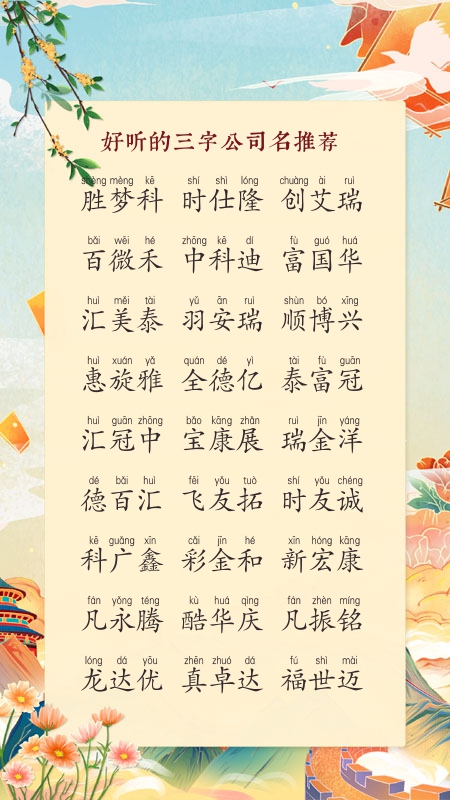 好听的三字公司名推荐
shèng mèng kē shí shì lóng chuàng ài ruì
胜梦科 时仕隆 创艾瑞
bǎi wēi hé zhōng kē dí fù guó huá
百微禾 中科迪 富国华
huì měi tài yǔ ān ruì shùn bó xīng
汇美泰 羽安瑞 顺博兴
huì xuán yǎ quán dé yì tài fù guān
惠旋雅 全德亿 泰富冠
huì guān zhōng bǎo kāng zhǎn ruì jīn yáng
汇冠中 宝康展 瑞金洋
dé bǎi huì fēi yǒu tuò shí yǒu chéng
德百汇 飞友拓 时友诚
kē guǎng xīn cǎi jīn hé xīn hóng kāng
科广鑫 彩金和 新宏康
fán yǒng téng kù huá qìng fán zhèn míng
凡永腾 酷华庆 凡振铭
lóng dá yōu zhēn zhuó dá fú shì mài
龙达优 真卓达 福世迈